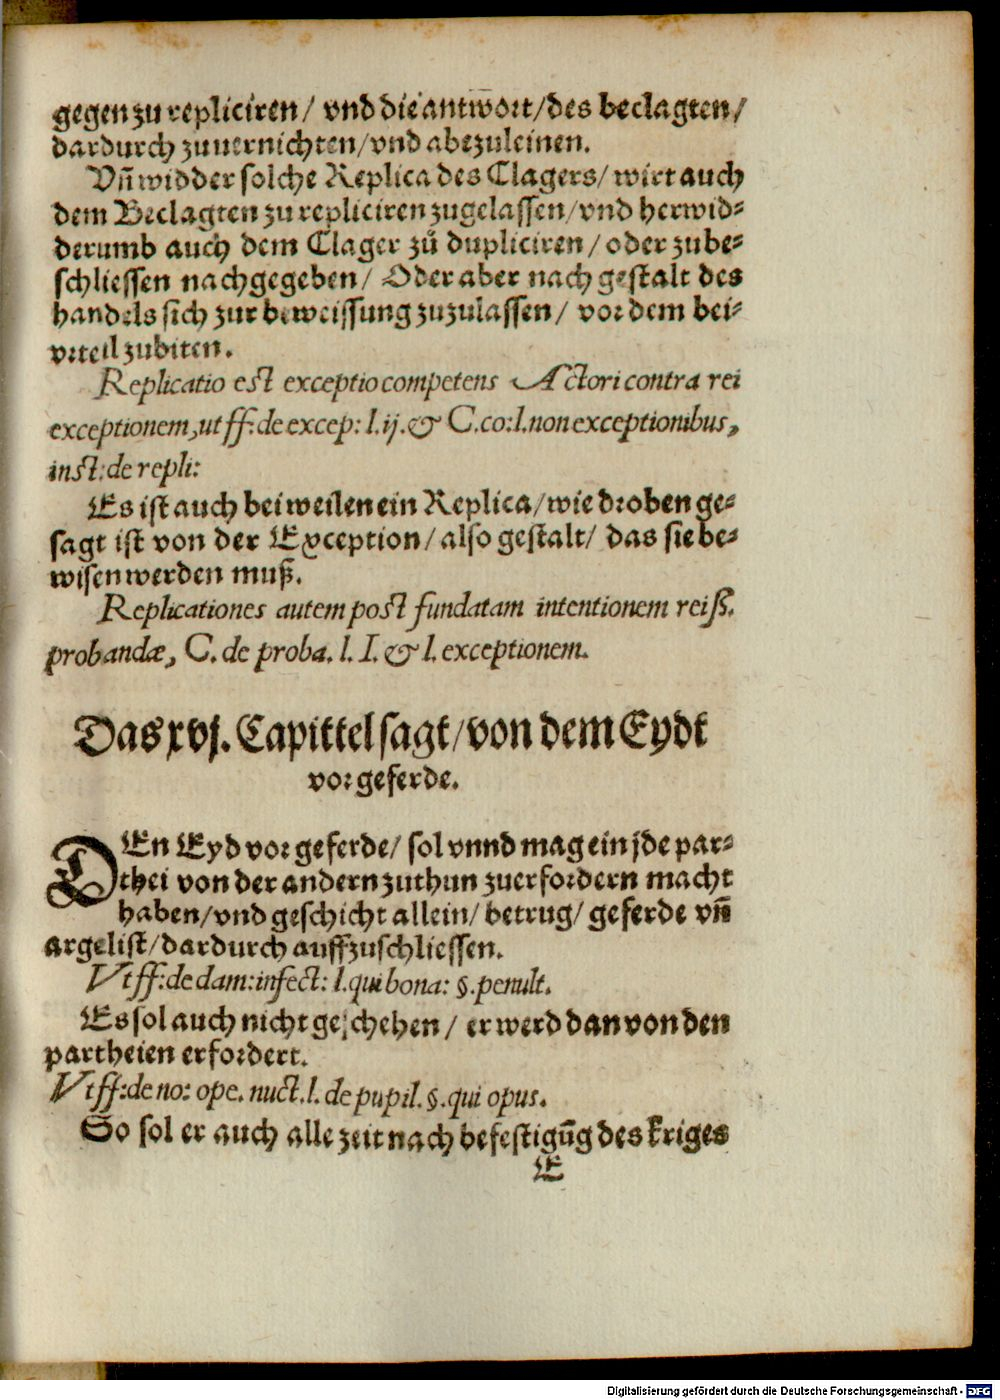 gegen zu repliciren/ vnd die antwort/des beclagten/
dardurch zuuernichten/vnd abezuleinen.
Vñ widder solche Replica des Clagers/ wirt auch
dem Beclagten zu repliciren zugelassen/vnd herwid⸗
derumb auch dem Clager zů dupliciren/ oder zube⸗
schliessen nachgegeben/ Oder aber nach gestalt des
handels sich zur beweissung zuzulassen/ vor dem bei⸗
vrteil zubiten.
Replicatio est exceptio competens Actori contra rei
exceptionem, ut ff: de excep: l. ij. & C. co: l. non exceptionibus,
inst: de repli:
Es ist auch bei weilen ein Replica/wie droben ge⸗
sagt ist von der Exception/ also gestalt/ das sie be⸗
wisen werden muß.
Replicationes autem post fundatam intentionem rei ß.
probandæ, C. de proba. l. I. & l. exceptionem.
Das xvj. Capittel sagt/von dem Eydt
vor geferde.
DEn Eyd vor geferde/ sol vnnd mag ein jde par⸗
thei von der andern zuthun zuerfordern macht
haben/vnd geschicht allein/ betrug/ geferde vñ
argelist/dardurch auffzuschliessen.
Vt ff: de dam: infect: l. qui bona: §. penult.
Es sol auch nicht geschehen/ er werd dan von den
partheien erfordert.
Vt ff: de no: ope. nuct. l. de pupil. §. qui opus.
So sol er auch alle zeit nach befestigūg des kriges
E
Digitalisierung gefördert durch die Deutsche Forschungsgemeinschaft - DFG